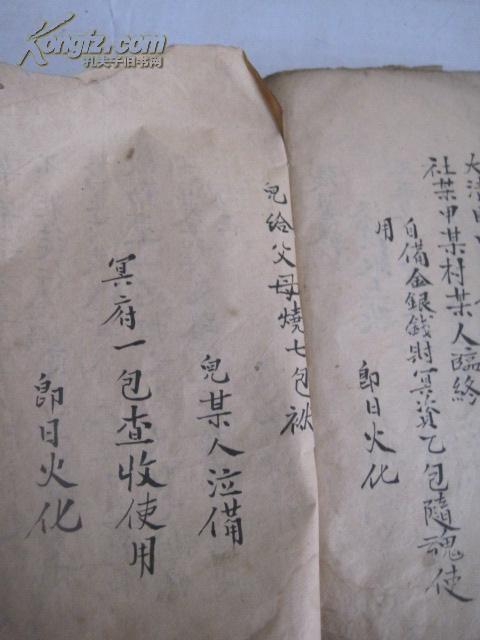 Kongfz.com
孔夫子旧书网
大清国
社某甲某村某人臨終
自備金銀錢財冥資乙包隨魂使
用
即日火化
兒給父母燒七包袱
兒某人泣備
冥府一包查收使用
即日火化